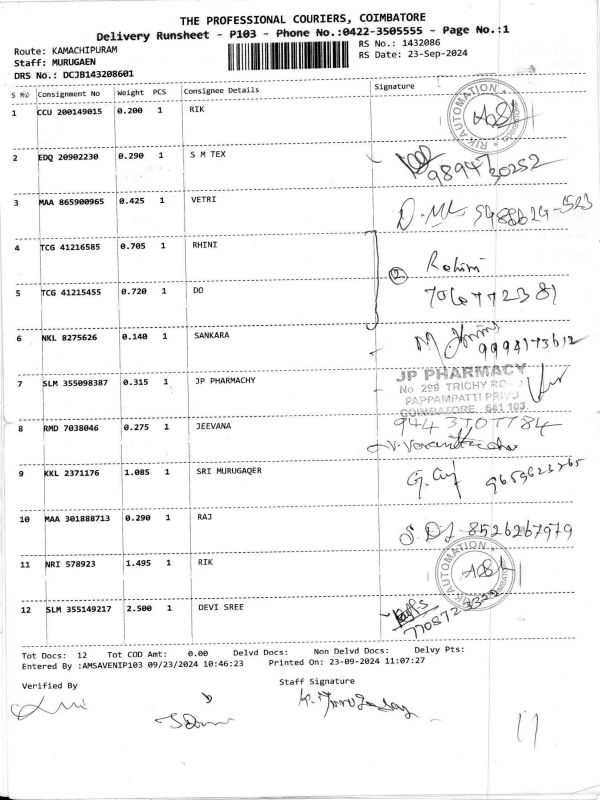 THE PROFESSIONAL COURIERS, COIMBATORE
Delivery Runsheet - P103 - Phone No.:0422-3505555 - Page No.:1
Route: KAMACHIPURAM
RS No.: 1432086
Staff: MURUGAEN
RS Date: 23-Sep-2024
DRS No.: DCJB143208601
S No Consignment No Weight PCS Consignee Details Signature
1 CCU 200149015 0.200 1 RIK
RIK AUTOMATION
2 EDQ 20902230 0.290 1 S M TEX
9894730252
3 MAA 865900965 0.425 1 VETRI
4 TCG 41216585 0.705 1 RHINI
Rohini
2
5 TCG 41215455 0.720 1 DO
7067772381
6 NKL 8275626 0.140 1 SANKARA
9994173612
7 SLM 355098387 0.315 1 JP PHARMACHY
JP PHARMACY
No 299 TRICHY ROAD
PAPPAMPATTI PRIVU
COIMBATORE 641 103
8 RMD 7038046 0.275 1 JEEVANA
9443707784
9 KKL 2371176 1.085 1 SRI MURUGAQER
10 MAA 301888713 0.290 1 RAJ
8526267979
11 NRI 578923 1.495 1 RIK
RIK AUTOMATION
12 SLM 355149217 2.500 1 DEVI SREE
Tot Docs: 12 Tot COD Amt: 0.00 Delvd Docs: Non Delvd Docs: Delvy Pts:
Entered By :AMSAVENIP103 09/23/2024 10:46:23 Printed On: 23-09-2024 11:07:27
Verified By Staff Signature
11